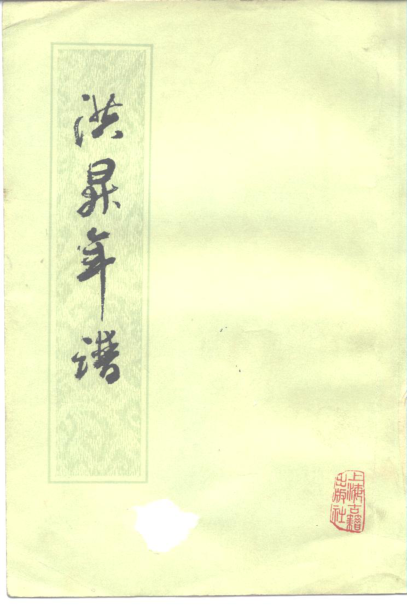 洪昇年谱
上海古籍
出版社